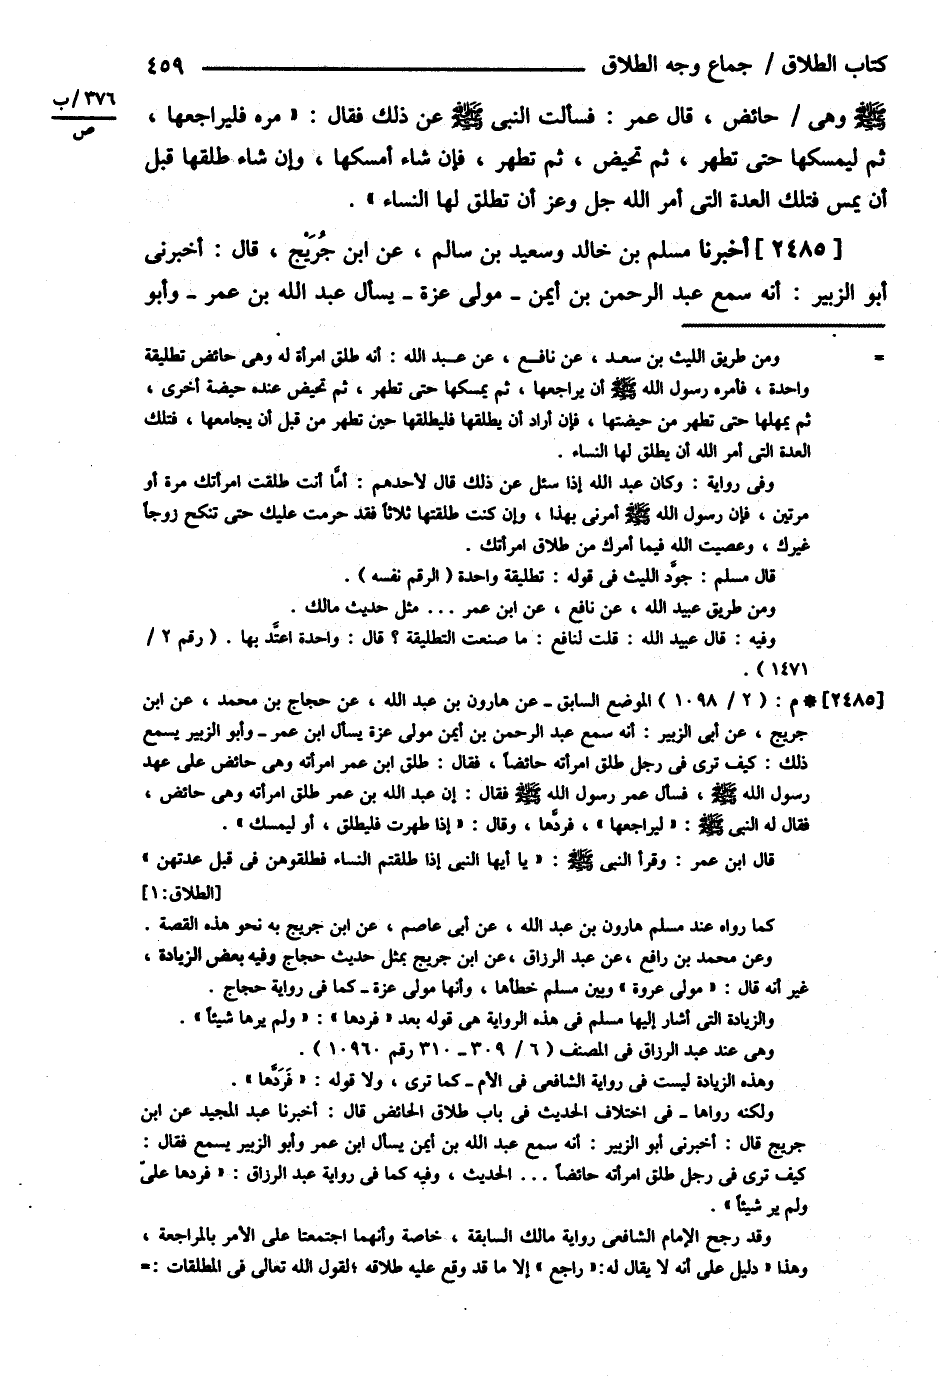 كتاب الطلاق / جماع وجه الطلاق ــــــــــــــــــــــــــــــــ ٤٥٩
٣٧٦/ب
ص
ﷺ وهى / حائض ، قال عمر : فسألت النبى ﷺ عن ذلك فقال : « مره فليراجعها ،
ثم ليمسكها حتى تطهر ، ثم تحيض ، ثم تطهر ، فإن شاء أمسكها ، وإن شاء طلقها قبل
أن يمس فتلك العدة التى أمر الله جل وعز أن تطلق لها النساء » .
[ ٢٤٨٥ ] أخبرنا مسلم بن خالد وسعيد بن سالم ، عن ابن جُرَيْج ، قال : أخبرنى
أبو الزبير : أنه سمع عبد الرحمن بن أيمن ـ مولى عزة ـ يسأل عبد الله بن عمر ـ وأبو
= ومن طريق الليث بن سعد ، عن نافع ، عن عبد الله : أنه طلق امرأة له وهى حائض تطليقة
واحدة ، فأمره رسول الله ﷺ أن يراجعها ، ثم يمسكها حتى تطهر ، ثم تحيض عنده حيضة أخرى ،
ثم يمهلها حتى تطهر من حيضتها ، فإن أراد أن يطلقها فليطلقها حين تطهر من قبل أن يجامعها ، فتلك
العدة التى أمر الله أن يطلق لها النساء .
وفى رواية : وكان عبد الله إذا سئل عن ذلك قال لأحدهم : أمَّا أنت طلقت امرأتك مرة أو
مرتين ، فإن رسول الله ﷺ أمرنى بهذا ، وإن كنت طلقتها ثلاثاً فقد حرمت عليك حتى تنكح زوجاً
غيرك ، وعصيت الله فيما أمرك من طلاق امرأتك .
قال مسلم : جوَّد الليث فى قوله : تطليقة واحدة ( الرقم نفسه ) .
ومن طريق عبيد الله ، عن نافع ، عن ابن عمر ... مثل حديث مالك .
وفيه : قال عبيد الله : قلت لنافع : ما صنعت التطليقة ؟ قال : واحدة اعتَّد بها . ( رقم ٢ /
١٤٧١ ) .
[٢٤٨٥] * م : ( ٢ / ١٠٩٨ ) الموضع السابق ـ عن هارون بن عبد الله ، عن حجاج بن محمد ، عن ابن
جريج ، عن أبى الزبير : أنه سمع عبد الرحمن بن أيمن مولى عزة يسأل ابن عمر ـ وأبو الزبير يسمع
ذلك : كيف ترى فى رجل طلق امرأته حائضاً ، فقال : طلق ابن عمر امرأته وهى حائض على عهد
رسول الله ﷺ ، فسأل عمر رسول الله ﷺ فقال : إن عبد الله بن عمر طلق امرأته وهى حائض ،
فقال له النبى ﷺ : « ليراجعها » ، فردَّها ، وقال : « إذا طهرت فليطلق ، أو ليمسك » .
قال ابن عمر : وقرأ النبى ﷺ : « يا أيها النبى إذا طلقتم النساء فطلقوهن فى قبل عدتهن »
[الطلاق:١]
كما رواه عند مسلم هارون بن عبد الله ، عن أبى عاصم ، عن ابن جريج به نحو هذه القصة .
وعن محمد بن رافع ،عن عبد الرزاق ،عن ابن جريج بمثل حديث حجاج وفيه بعض الزيادة ،
غير أنه قال : « مولى عروة » وبين مسلم خطأها ، وأنها مولى عزة ـ كما فى رواية حجاج .
والزيادة التى أشار إليها مسلم فى هذه الرواية هى قوله بعد « فردها » : « ولم يرها شيئاً » .
وهى عند عبد الرزاق فى المصنف ( ٦ / ٣٠٩ ـ ٣١٠ رقم ١٠٩٦٠ ) .
وهذه الزيادة ليست فى رواية الشافعى فى الأم ـ كما ترى ، ولا قوله : « فَرَدَّها » .
ولكنه رواها ـ فى اختلاف الحديث فى باب طلاق الحائض قال : أخبرنا عبد المجيد عن ابن
جريج قال : أخبرنى أبو الزبير : أنه سمع عبد الله بن أيمن يسأل ابن عمر وأبو الزبير يسمع فقال :
كيف ترى فى رجل طلق امرأته حائضاً ... الحديث ، وفيه كما فى رواية عبد الرزاق : « فردها علىّ
ولم ير شيئاً » .
وقد رجح الإمام الشافعى رواية مالك السابقة ، خاصة وأنهما اجتمعتا على الأمر بالمراجعة ،
وهذا « دليل على أنه لا يقال له:« راجع » إلا ما قد وقع عليه طلاقه ؛لقول الله تعالى فى المطلقات :=